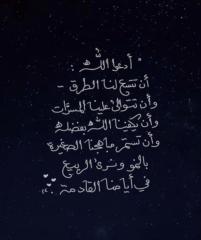 * أدعوا الله :
أن تتسع لنا الطرق -
وأن تتوالى علينا المسرّات
وأن يكفينا الله بفضله
وأن تستمر مباهجنا الصغيرة
بالنمو ونرى الربيع
في أيامنا القادمة .